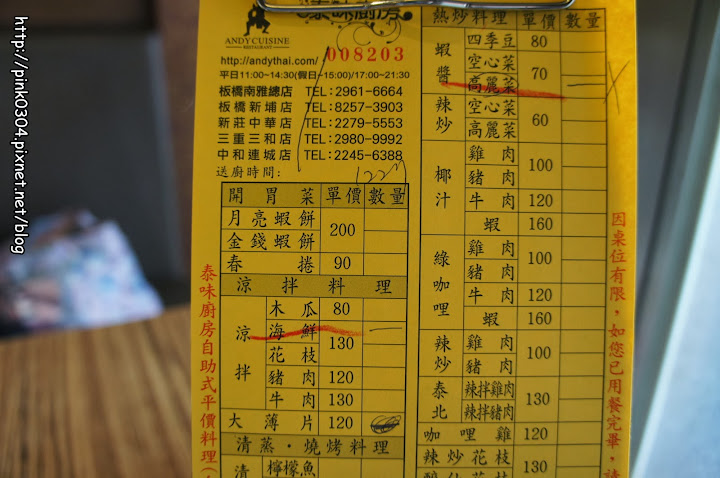 泰味廚房
ANDY CUISINE
RESTAURANT
http://andythai.com/
008203
平日11:00~14:30(假日~15:00)/17:00~21:30
板橋南雅總店 TEL:2961-6664
板橋新埔店 TEL:8257-3903
新莊中華店 TEL:2279-5553
三重三和店 TEL:2980-9992
中和連城店 TEL:2245-6388
送廚時間:
開胃菜 單價 數量
月亮蝦餅 200
金錢蝦餅
春捲 90
涼拌料理
涼拌 木瓜 80
海鮮 130
花枝
豬肉 120
牛肉 130
大薄片 120
清蒸·燒烤料理
清 檸檬魚
熱炒料理 單價 數量
蝦醬 四季豆 80
空心菜 70
高麗菜
辣炒 空心菜 60
高麗菜
椰汁 雞肉 100
豬肉
牛肉 120
蝦 160
綠咖哩 雞肉 100
豬肉
牛肉 120
蝦 160
辣炒 雞肉 100
豬肉
泰北 辣拌雞肉 130
辣拌豬肉
咖哩雞 120
辣炒花枝 130
泰味廚房自助式平價料理(
因桌位有限,如您已用餐完畢,請
http://pink0304.pixnet.net/blog